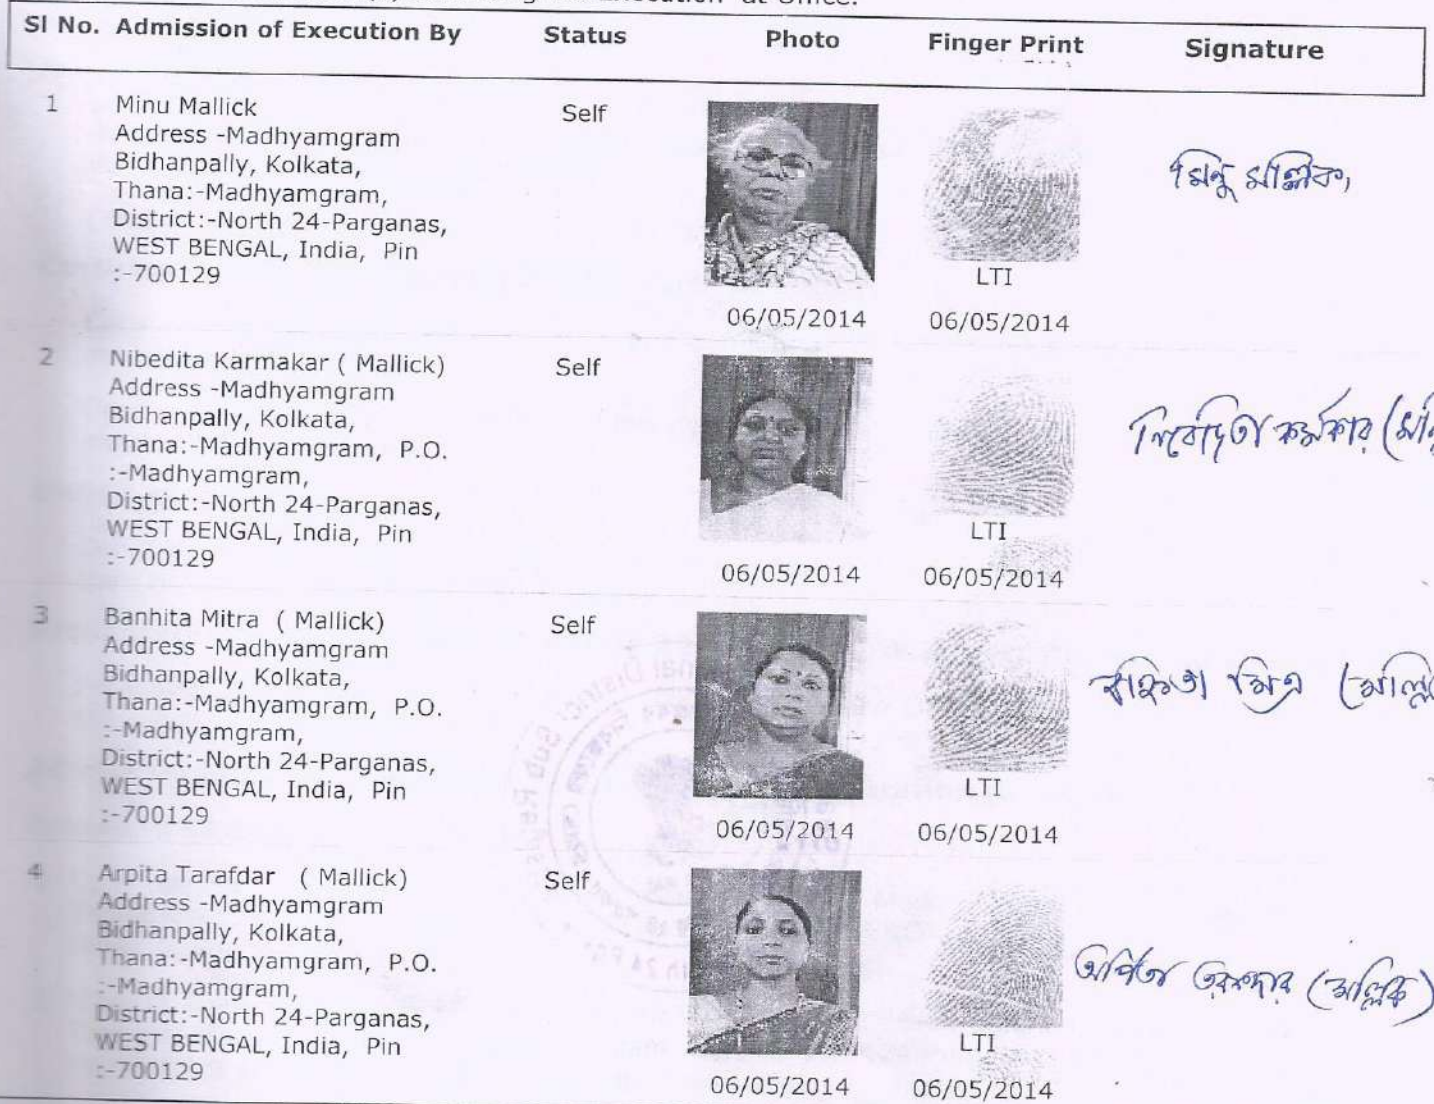 Execution at Office.
Sl No. Admission of Execution By Status Photo Finger Print Signature
1 Minu Mallick Self
Address -Madhyamgram
Bidhanpally, Kolkata,
Thana:-Madhyamgram,
District:-North 24-Parganas,
WEST BENGAL, India, Pin
:-700129
LTI
06/05/2014 06/05/2014
মিনু মল্লিক,
2 Nibedita Karmakar ( Mallick) Self
Address -Madhyamgram
Bidhanpally, Kolkata,
Thana:-Madhyamgram, P.O.
:-Madhyamgram,
District:-North 24-Parganas,
WEST BENGAL, India, Pin
:-700129
LTI
06/05/2014 06/05/2014
নিবেদিতা কর্মকার
3 Banhita Mitra ( Mallick) Self
Address -Madhyamgram
Bidhanpally, Kolkata,
Thana:-Madhyamgram, P.O.
:-Madhyamgram,
District:-North 24-Parganas,
WEST BENGAL, India, Pin
:-700129
LTI
06/05/2014 06/05/2014
বহ্নিতা মিত্র
4 Arpita Tarafdar ( Mallick) Self
Address -Madhyamgram
Bidhanpally, Kolkata,
Thana:-Madhyamgram, P.O.
:-Madhyamgram,
District:-North 24-Parganas,
WEST BENGAL, India, Pin
:-700129
LTI
06/05/2014 06/05/2014
অর্পিতা তরফদার (মল্লিক)